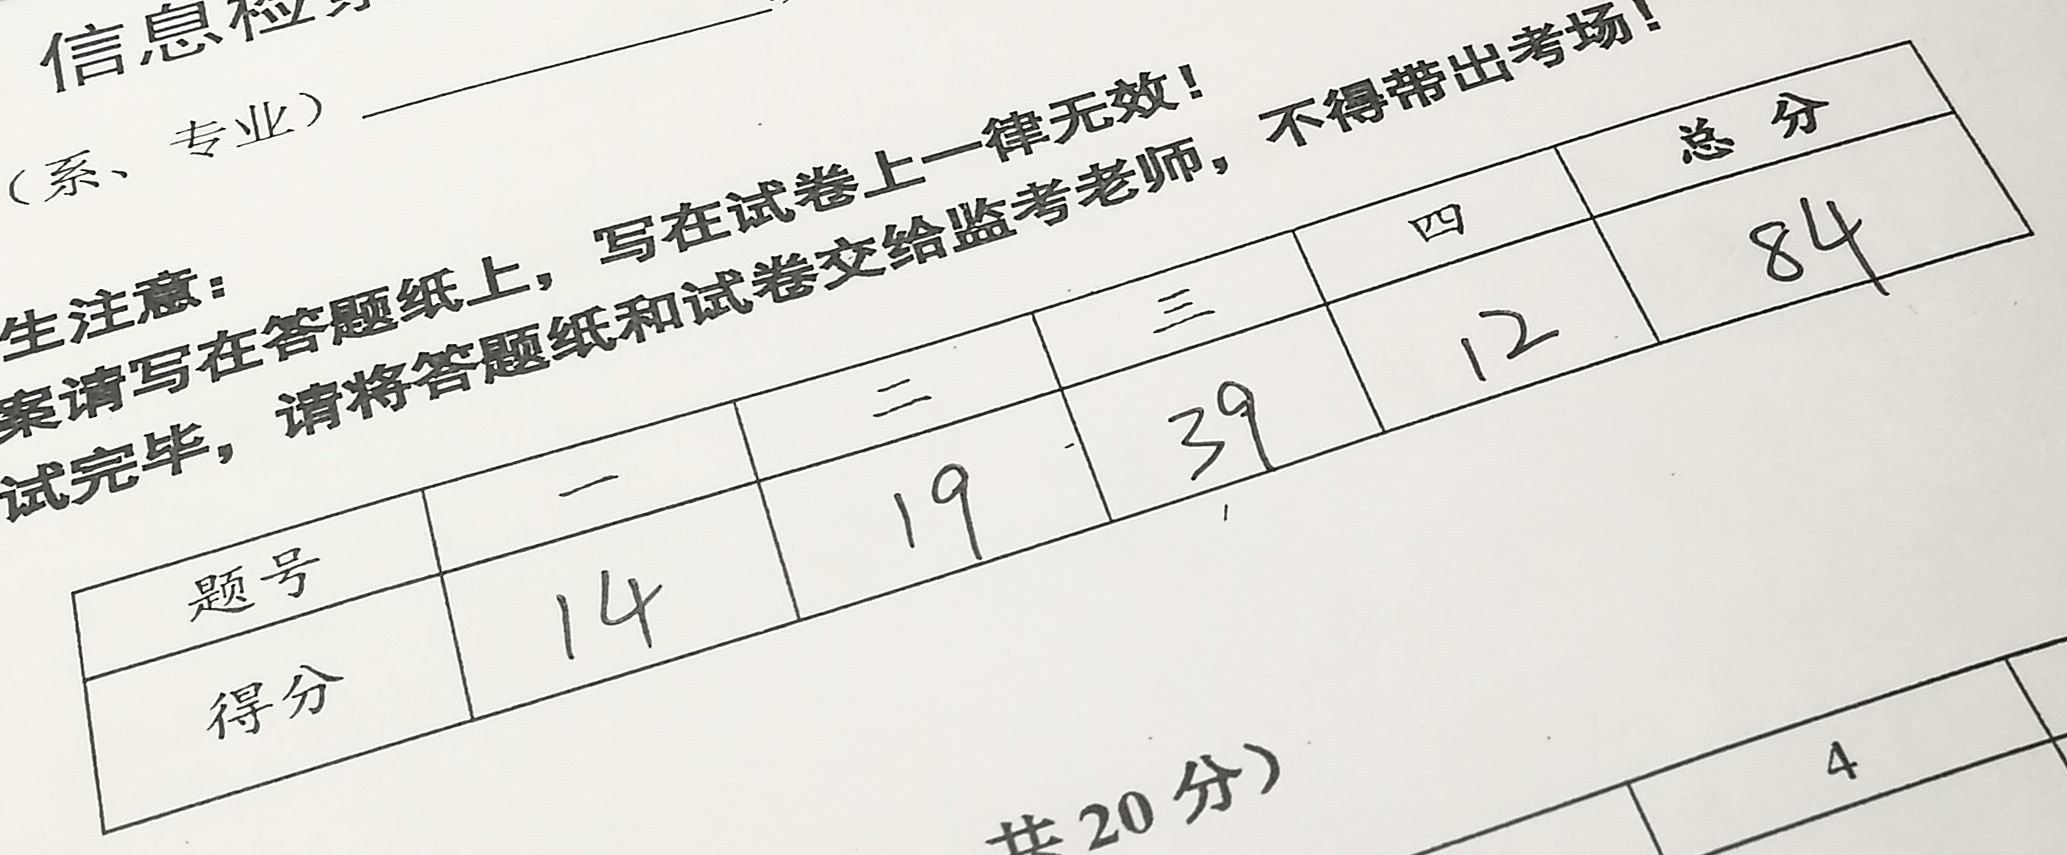 信息检
（系、专业）
生注意：
案请写在答题纸上，写在试卷上一律无效！
试完毕，请将答题纸和试卷交给监考老师，不得带出考场！
题号 一 二 三 四 总分
得分 14 19 39 12 84
共 20 分）
4